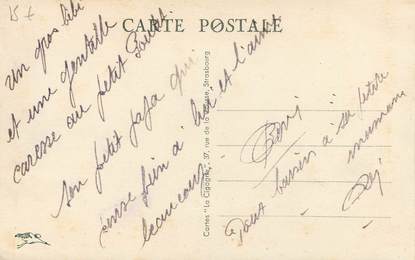 CARTE POSTALE
Un gros bibi
et une gentille
caresse au petit
son petit papa qui
pense bien à lui et l'aime
beaucoup
Cartes "La Cigogne", 37, rue de la Strasbourg
Doux baisers à sa petite
maman